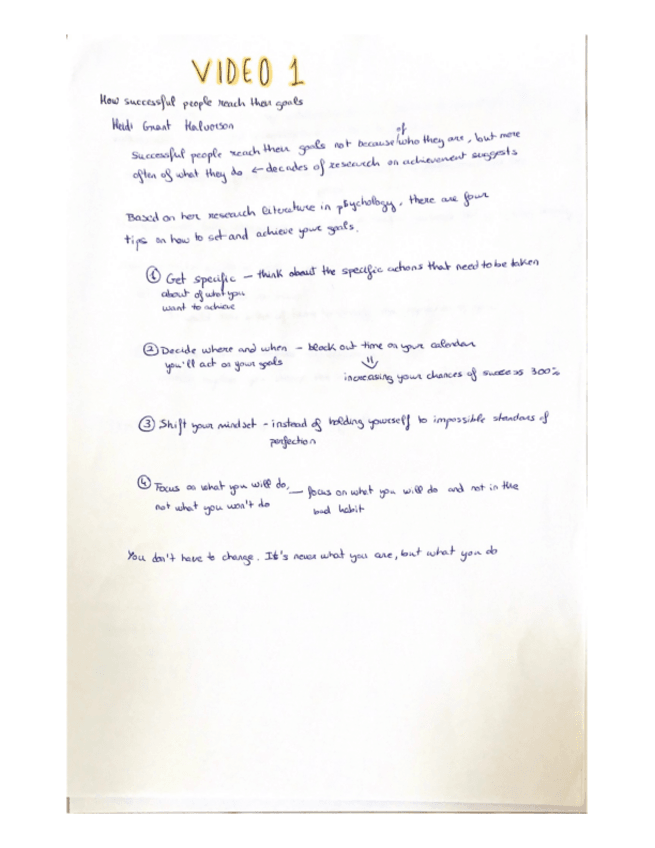 VIDEO 1
How successful people reach their goals
Heidi Grant Halvorson
Successful people reach their goals not because of who they are, but more
often of what they do ← decades of research on achievement suggests
Based on her research literature in psychology, there are four
tips on how to set and achieve your goals.
① Get specific – think about the specific actions that need to be taken
about of what you
want to achieve
② Decide where and when – block out time on your calendar
you'll act on your goals
increasing your chances of success 300%
③ Shift your mindset – instead of holding yourself to impossible standars of
perfection
④ Focus on what you will do, — focus on what you will do and not in the
not what you won't do bad habit
You don't have to change. It's never what you are, but what you do